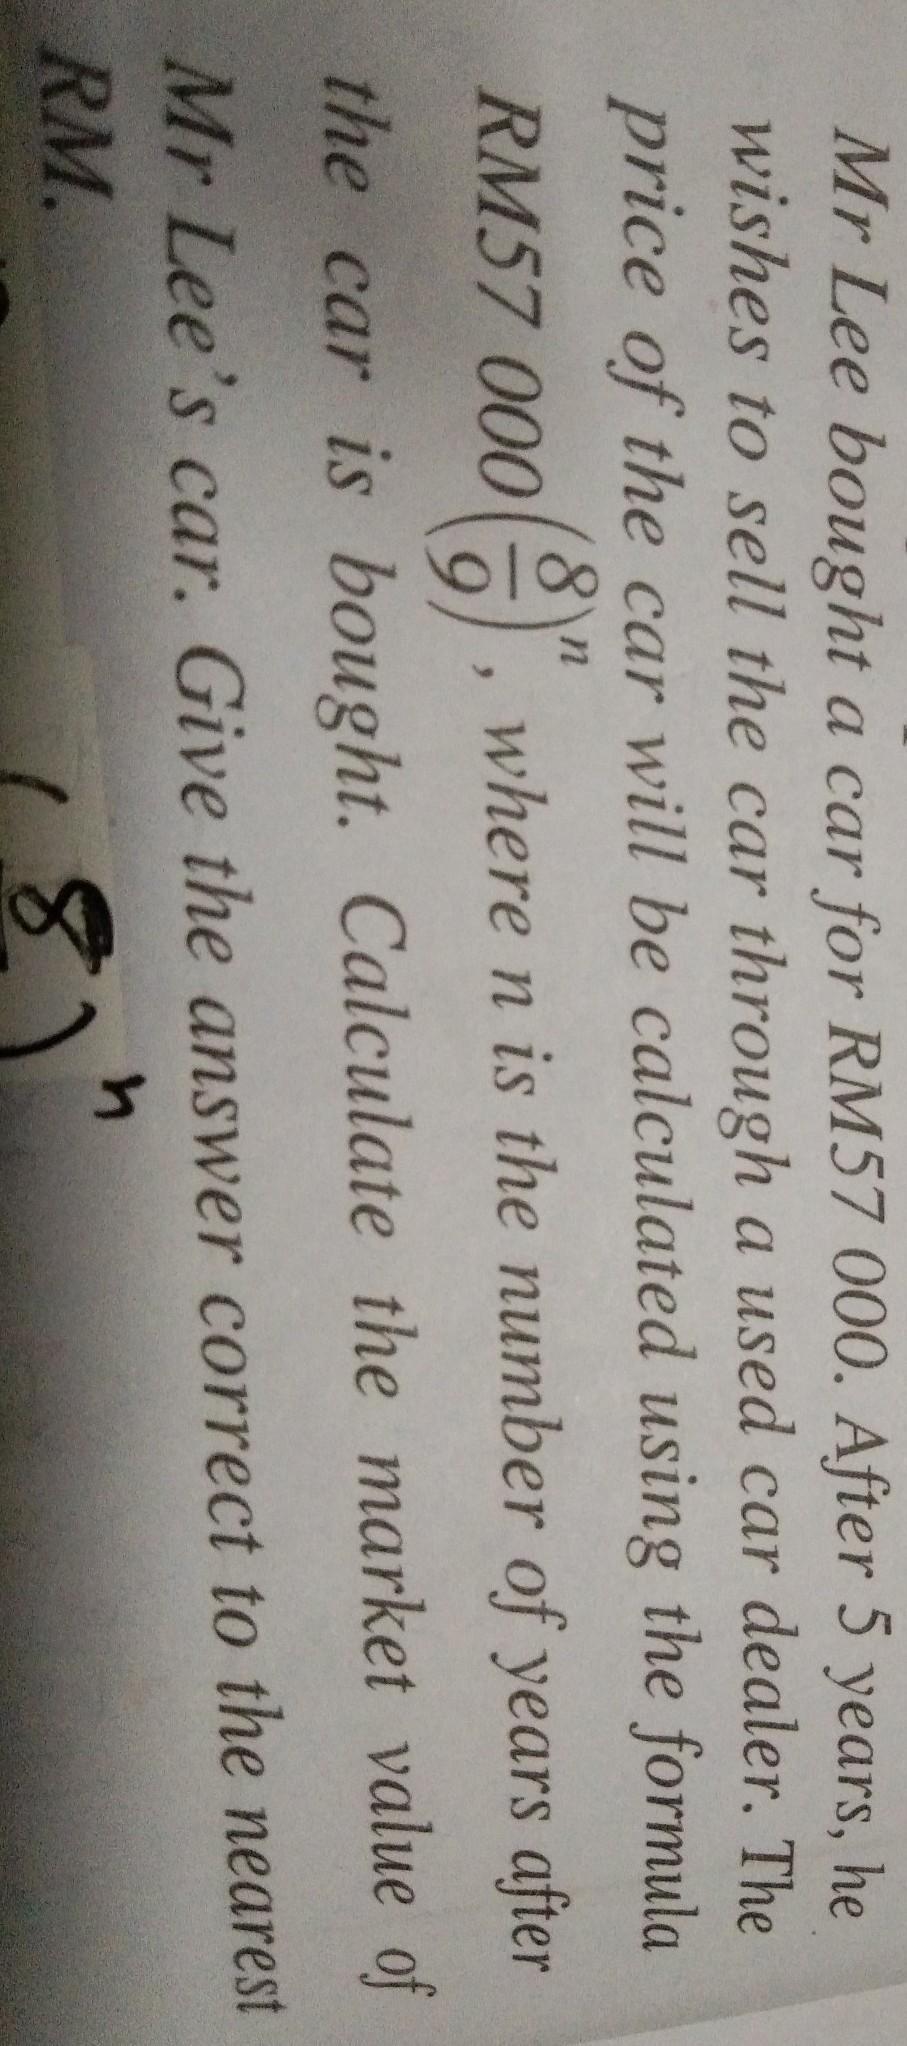 Mr Lee bought a car for RM57 000. After 5 years, he
wishes to sell the car through a used car dealer. The
price of the car will be calculated using the formula
RM57 000(8/9)^n, where n is the number of years after
the car is bought. Calculate the market value of
Mr Lee's car. Give the answer correct to the nearest
RM.
(8)^n